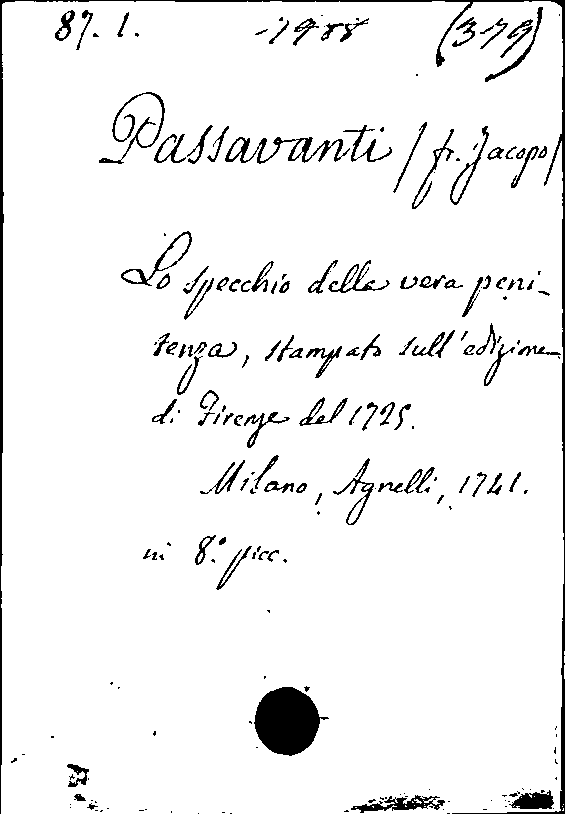 87. 1. -7988 (379)
Passavanti / fr. Jacopo /
Lo specchio della vera peni-
tenza, stampato sull'edizione
di Firenze del 1725.
Milano, Agnelli, 1741.
in 8.° picc.